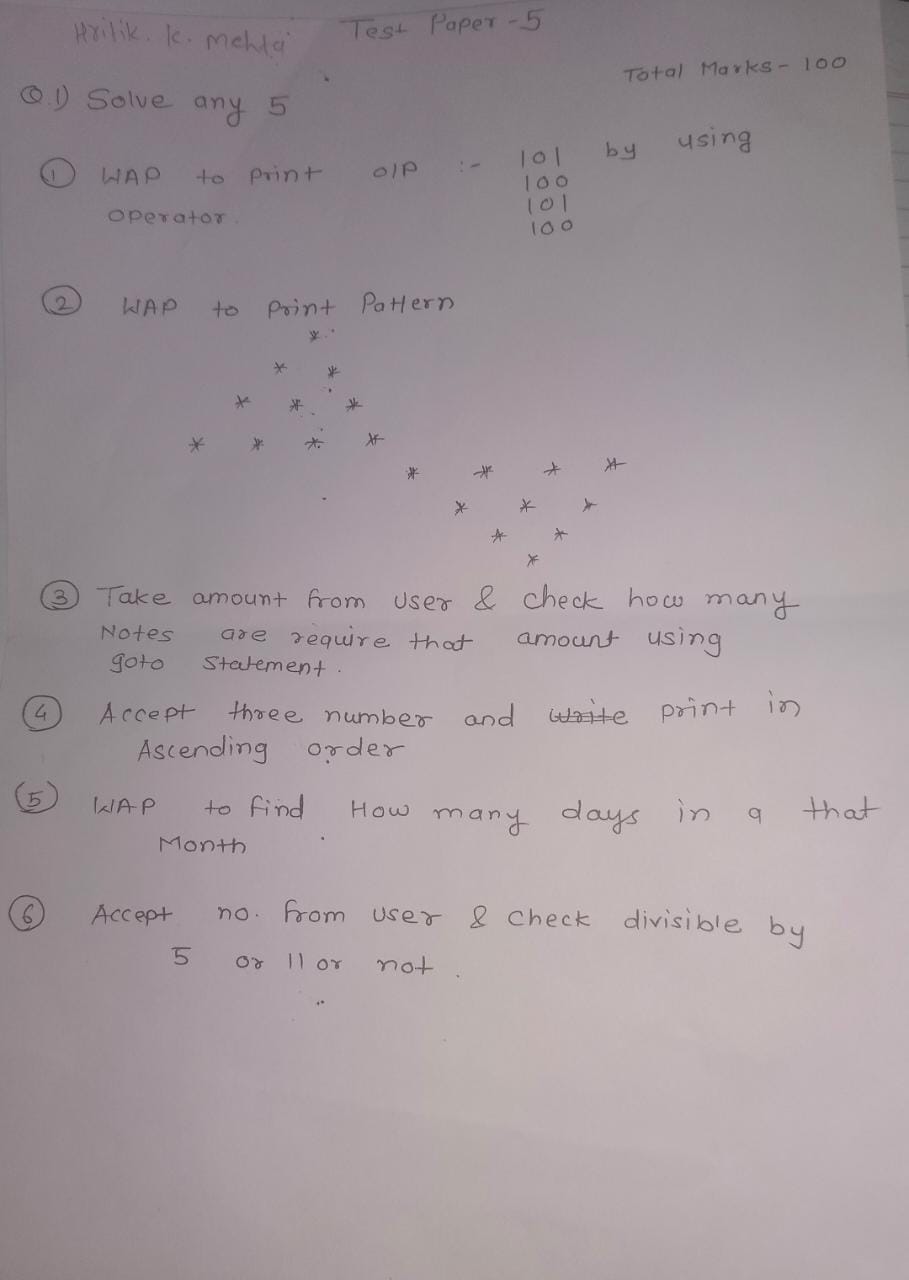 Hritik. K. Mehta Test Paper -5
Total Marks - 100
Q.1) Solve any 5
① WAP to print O/P :- 101 by using
100
101
100
operator.
② WAP to print Pattern
*
* *
* * *
* * * *
* * * *
* * *
* *
*
③ Take amount from user & check how many
Notes are require that amount using
goto statement.
④ Accept three number and write print in
Ascending order
⑤ WAP to find How many days in a that
Month
⑥ Accept no. from user & check divisible by
5 or 11 or not.